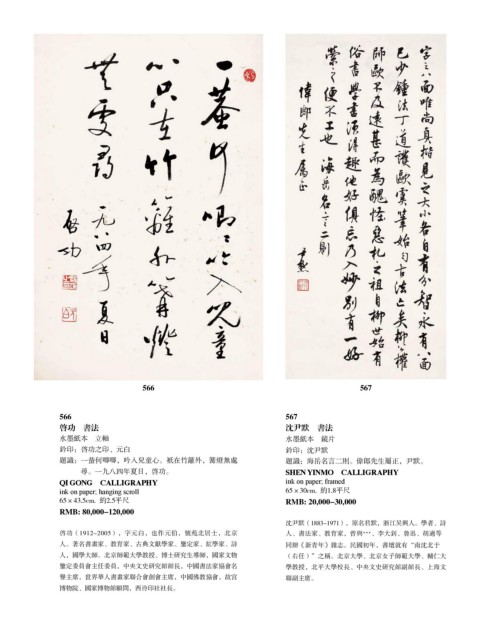 一菴何唧〻吟入兒童
心只在竹籬外篝燈
無處尋 一九八四年夏日
啟功
字之八面唯尚真楷見之大小各自有分智永有八面
已少鍾法丁道護歐虞筆始勻古法亡矣柳公權
師歐不及遠甚而為醜怪惡札之祖自柳世始有
俗書學書須得趣他好俱忘乃入妙別有一好
縈之便不工也 海岳名言二則
偉郎先生屬正
尹默
566
567
566
啓功 書法
水墨紙本 立軸
鈐印:啓功之印、元白
題識:一菴何唧唧,吟入兒童心。衹在竹籬外,篝燈無處
尋。一九八四年夏日,啓功。
QI GONG CALLIGRAPHY
ink on paper; hanging scroll
65×43.5cm. 約2.5平尺
RMB: 80,000-120,000
啓功(1912-2005),字元白,也作元伯,號苑北居士,北京
人。著名書畫家、教育家、古典文獻學家、鑒定家、紅學家、詩
人,國學大師。北京師範大學教授、博士研究生導師,國家文物
鑒定委員會主任委員、中央文史研究館館長、中國書法家協會名
譽主席,世界華人書畫家聯合會創會主席,中國佛教協會、故宮
博物院、國家博物館顧問,西泠印社社長。
567
沈尹默 書法
水墨紙本 鏡片
鈐印:沈尹默
題識:海岳名言二則。偉郎先生屬正,尹默。
SHEN YINMO CALLIGRAPHY
ink on paper; framed
65×30cm. 約1.8平尺
RMB: 20,000-30,000
沈尹默(1883-1971),原名君默,浙江吳興人。學者、詩
人、書法家、教育家,曾與***、李大釗、魯迅、胡適等
同辦《新青年》雜志。民國初年,書壇就有“南沈北于
(右任)”之稱。北京大學、北京女子師範大學、輔仁大
學教授,北平大學校長、中央文史研究館副館長、上海文
聯副主席。